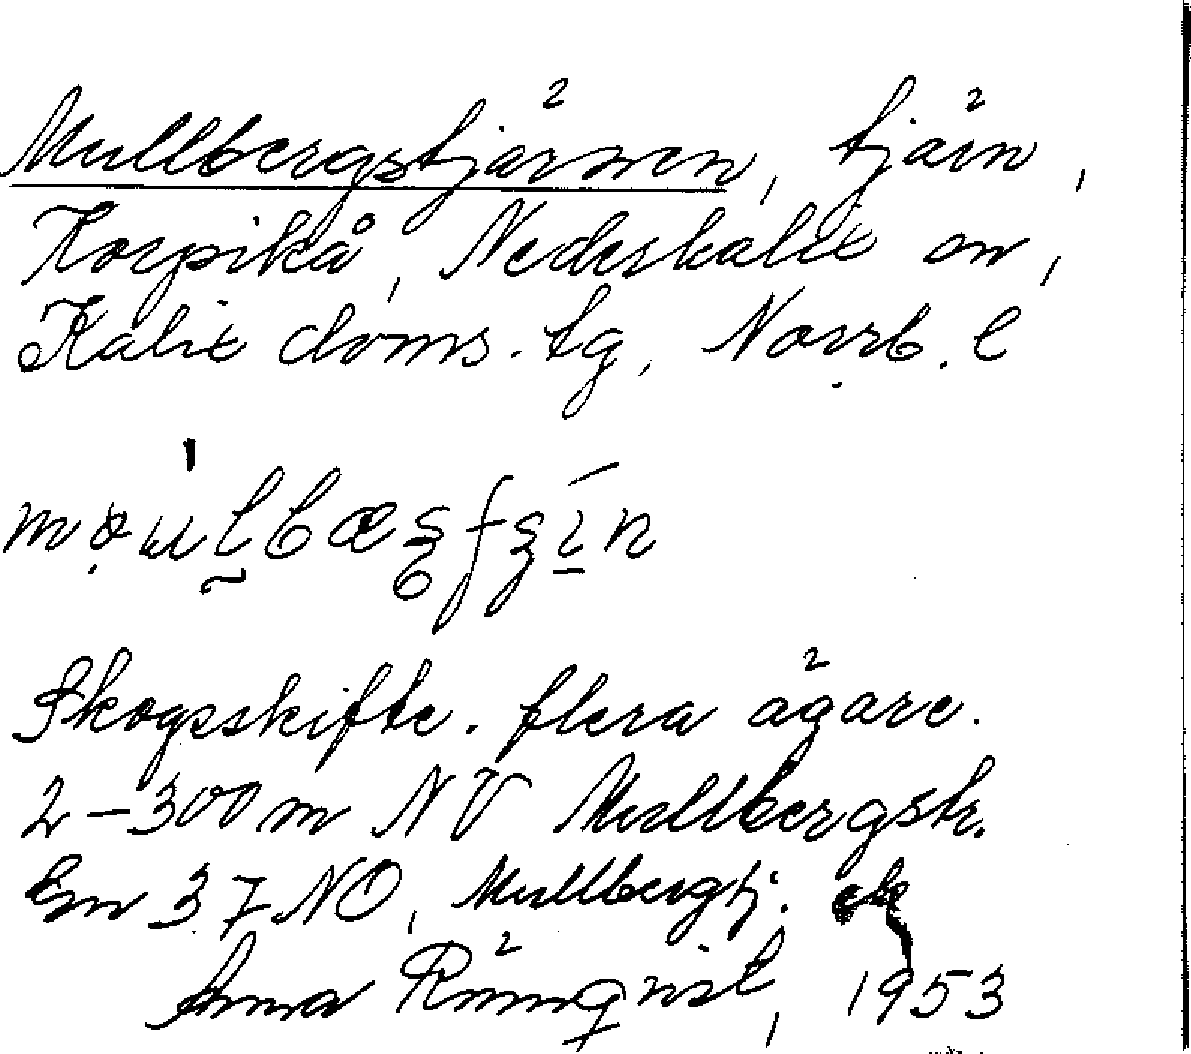 Mullbergstjärnen, tjärn,
Korpikå, Nederkalix sn,
Kalix doms. tg, Norrb. l
Skogsskifte. flera ägare.
2-300 m NV Mullbergstr.
Gn 37 NO, Mullbergtj.
Anna Rönnqvist, 1953